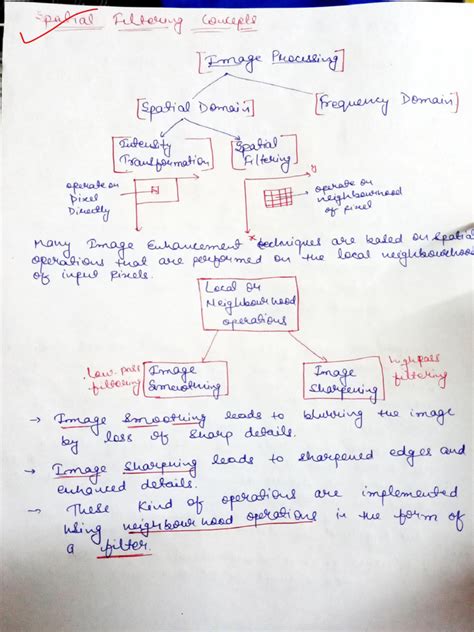 Spatial Filtering Concepts
[Image Processing]
[Spatial Domain]
[Frequency Domain]
[Intensity
Transformation]
[Spatial
Filtering]
operate on
pixel
Directly
y
operate on
neighbourhood
of pixel
x
Many Image Enhancement techniques are based on spatial
operations that are performed on the local neighbourhood
of input pixels.
Local or
Neighbourhood
operations
low-pass
filtering
Image
Smoothing
Image
Sharpening
high pass
filtering
→ Image Smoothing leads to blurring the image
by loss of sharp details.
→ Image Sharpening leads to sharpened edges and
enhanced details.
→ These kind of operations are implemented
using neighbourhood operations in the form of
a filter.